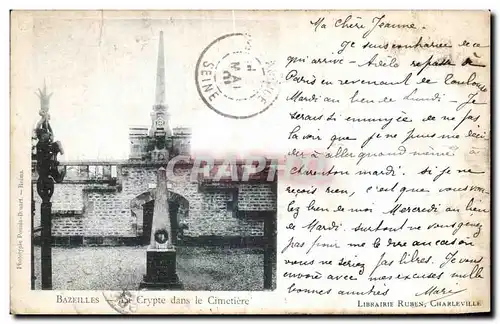 Ma Chère Jeanne.
Je suis contrariée de ce
qui arrive - Adèle repasse de
Paris en revenant de
Mardi au lieu de Lundi. Je
serais si ennuyée de ne pas
la voir que je ne puis me déci
der à aller quand même à
Charenton mardi. si je ne
reçois rien, c'est que vous vou
lez bien de moi Mercredi au lieu
de Mardi. surtout ne vous gênez
pas pour me le dire au cas où
vous ne seriez pas libres. Je vous
envoie avec mes excuses mille
bonnes amitiés Marie
SEINE
MAI
CHAPITRE.COM
Phototypie Ponsin-Druart. — Reims
BAZEILLES — Crypte dans le Cimetière
LIBRAIRIE RUBEN, CHARLEVILLE